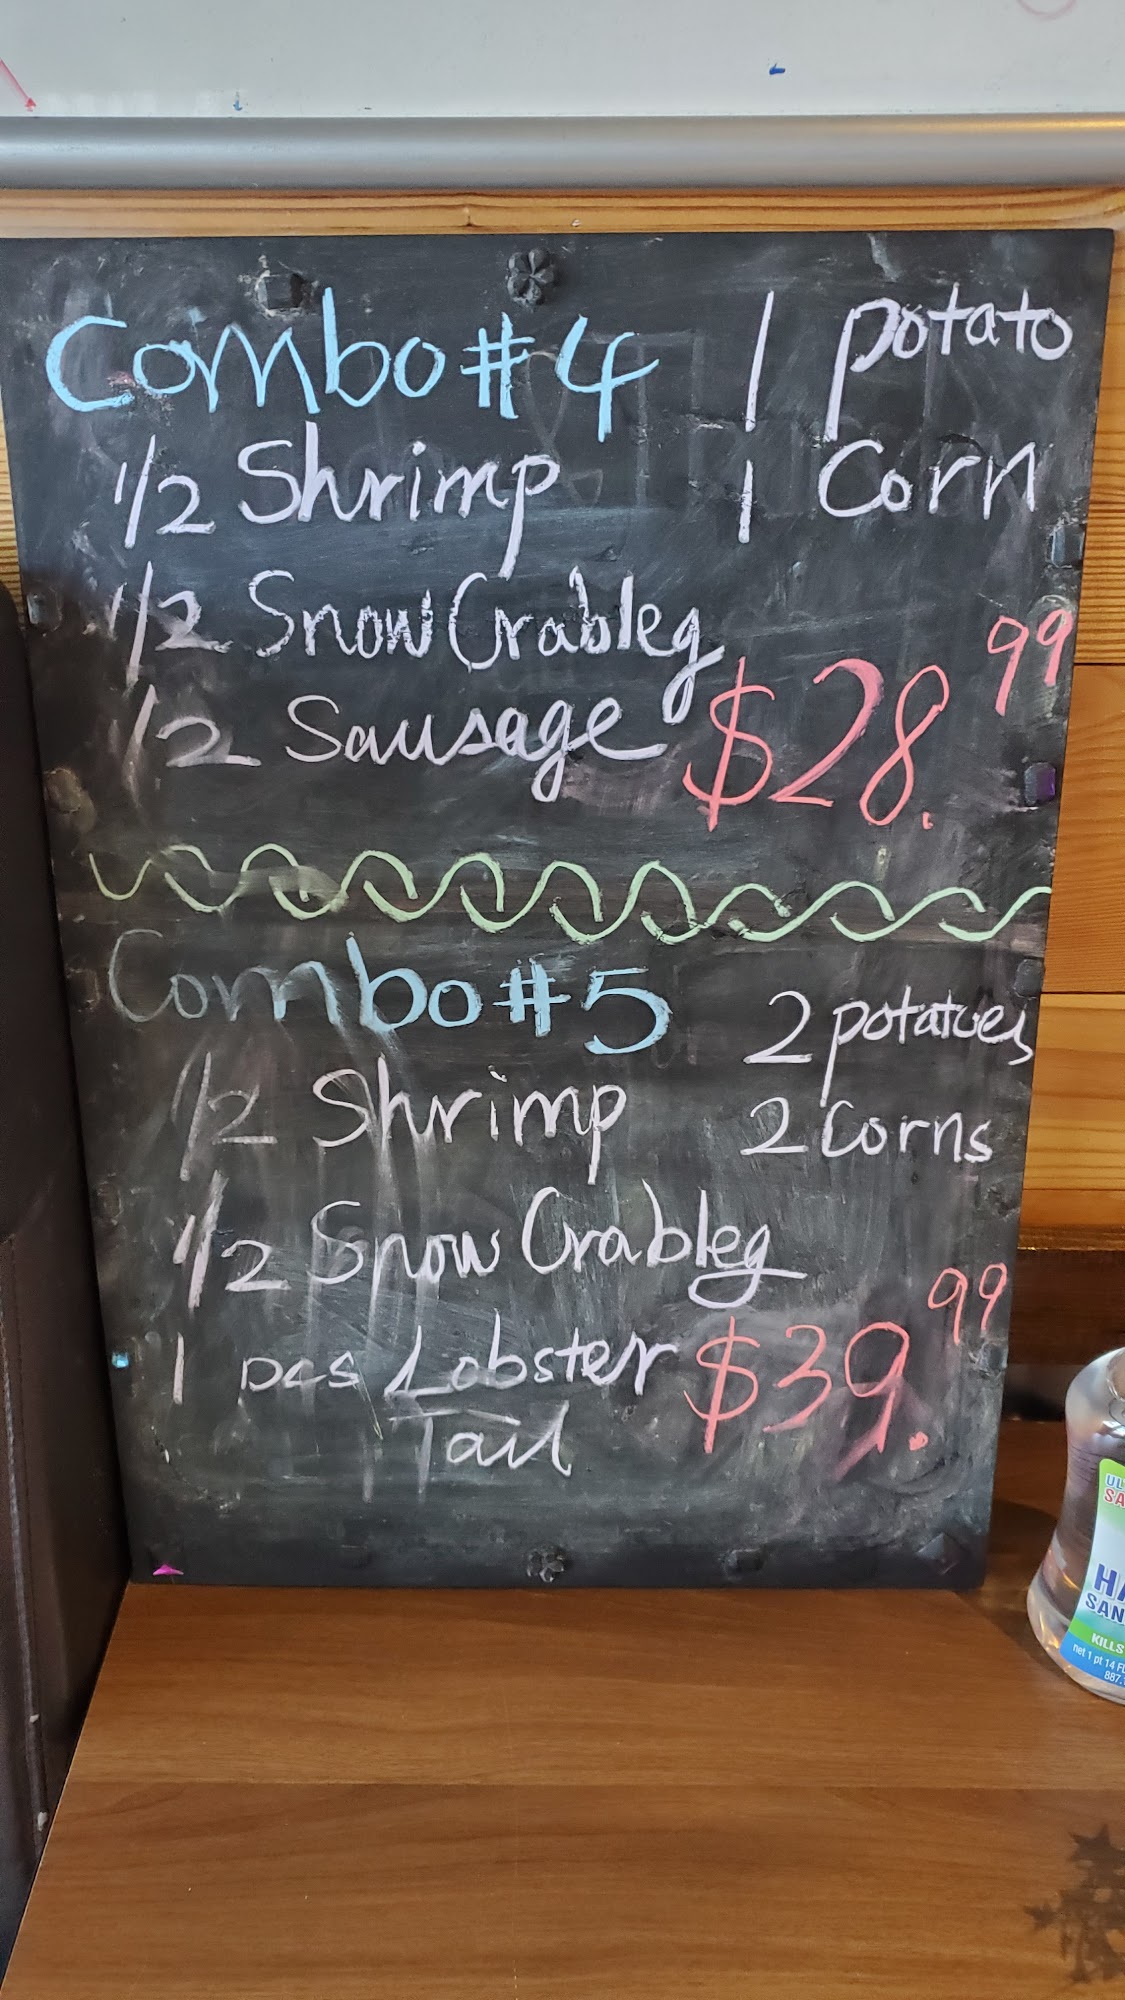 Combo #4
1/2 Shrimp
1/2 Snow Crableg
1/2 Sausage
1 potato
1 Corn
$28.99
Combo #5
1/2 Shrimp
1/2 Snow Crableg
1 pcs Lobster
Tail
2 potatoes
2 Corns
$39.99
HA
SAN
KILLS
net 1 pt 14 F
887.